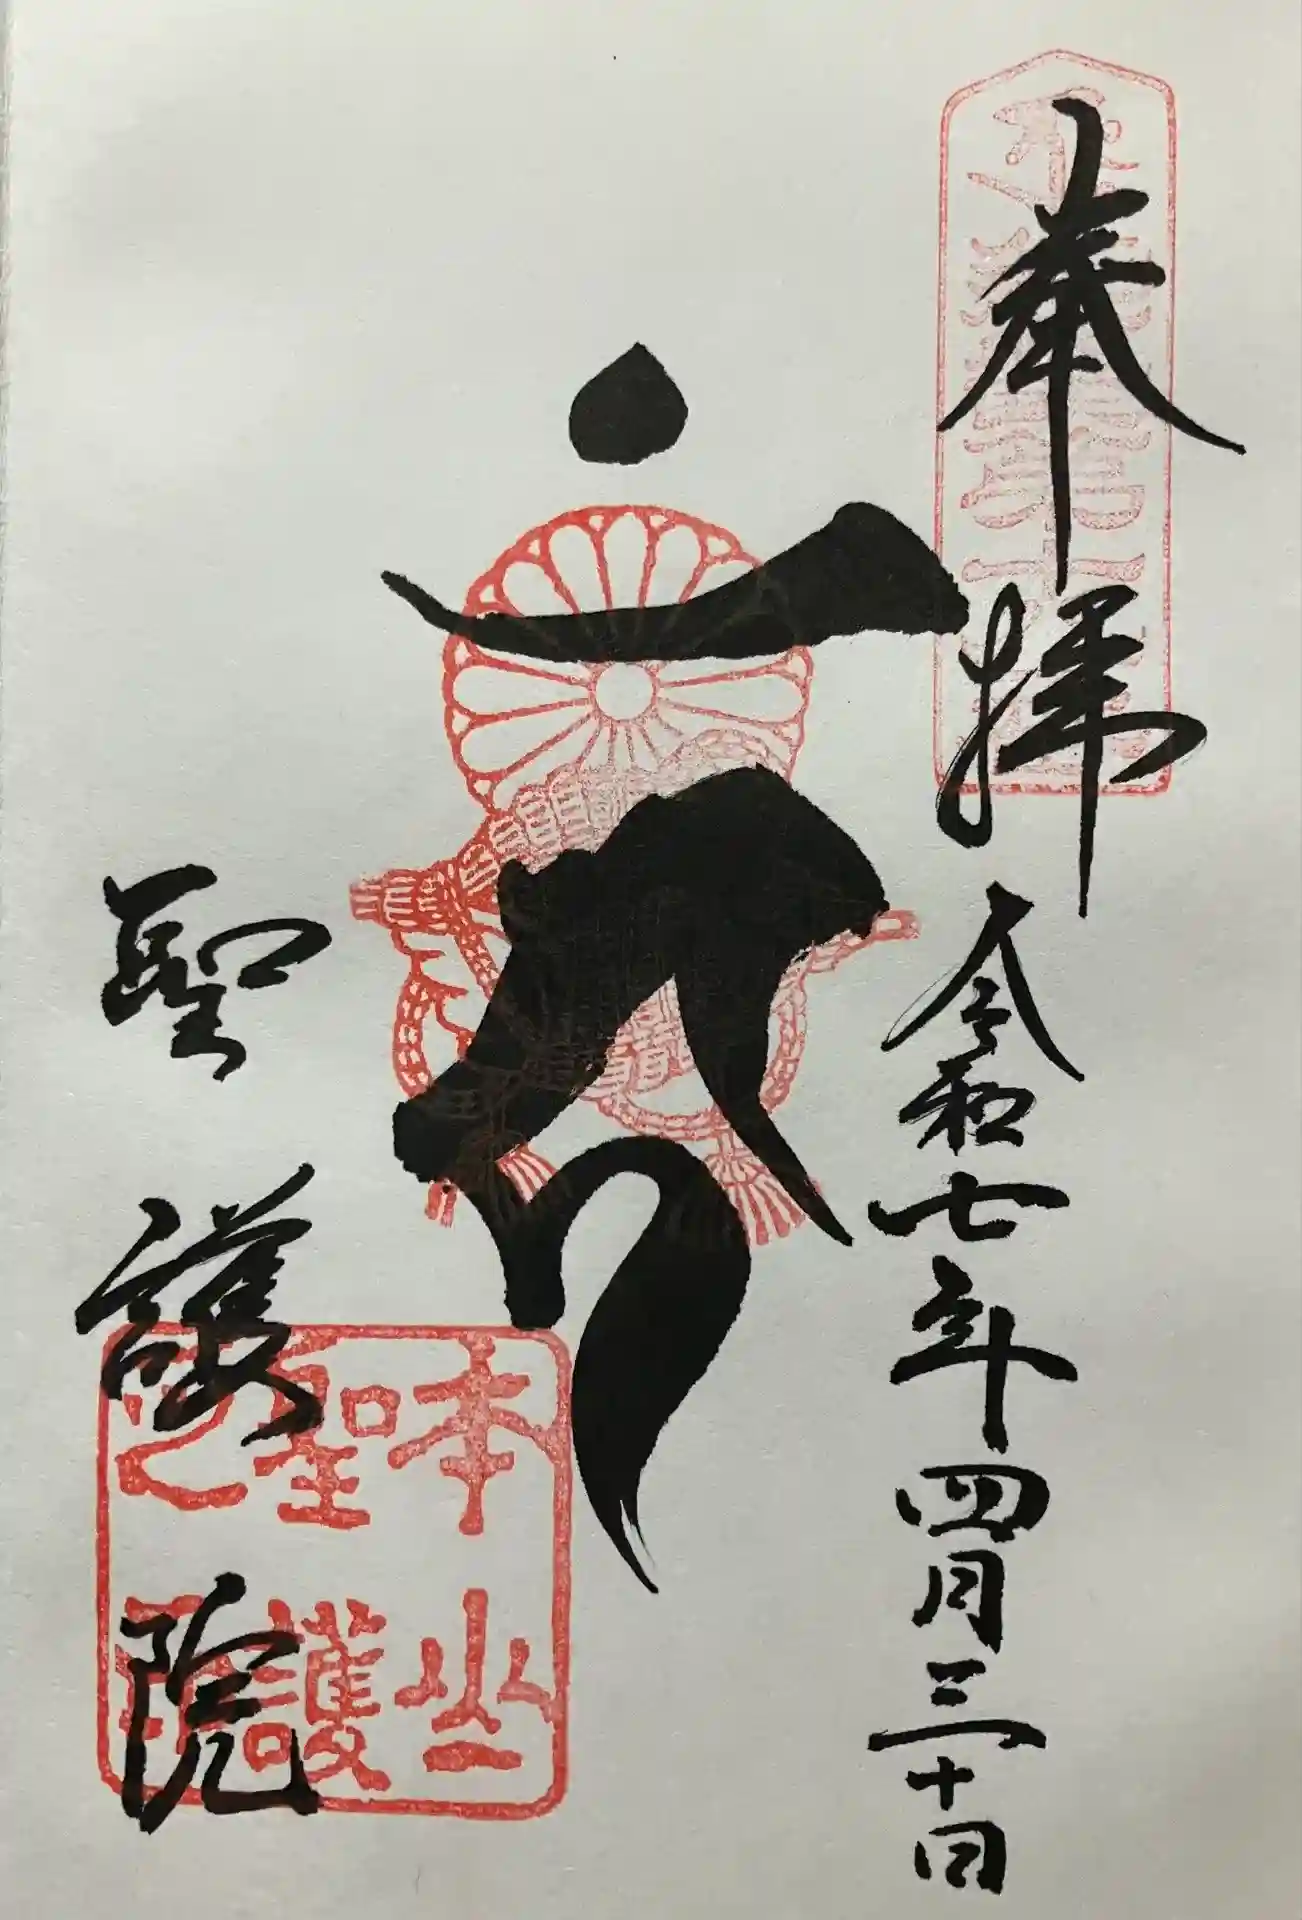 奉拝
令和七年四月三十日
聖護院
本山
聖護
之院